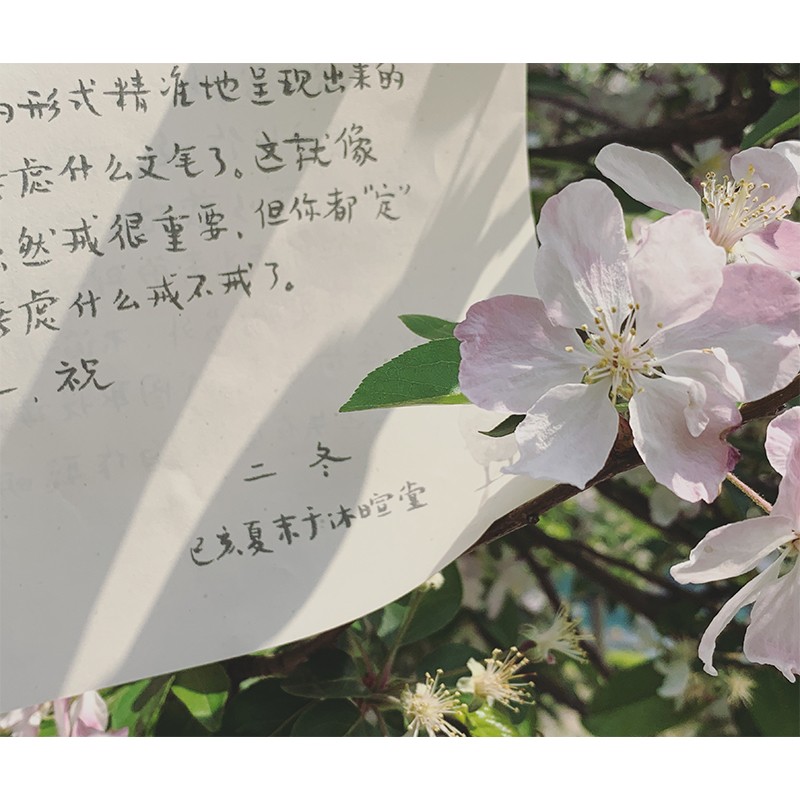 的形式精准地呈现出来的
虑什么文笔了。这就像
然戒很重要，但你都“定”
虑什么戒不戒了。
一、祝
二冬
己亥夏末于沐暄堂